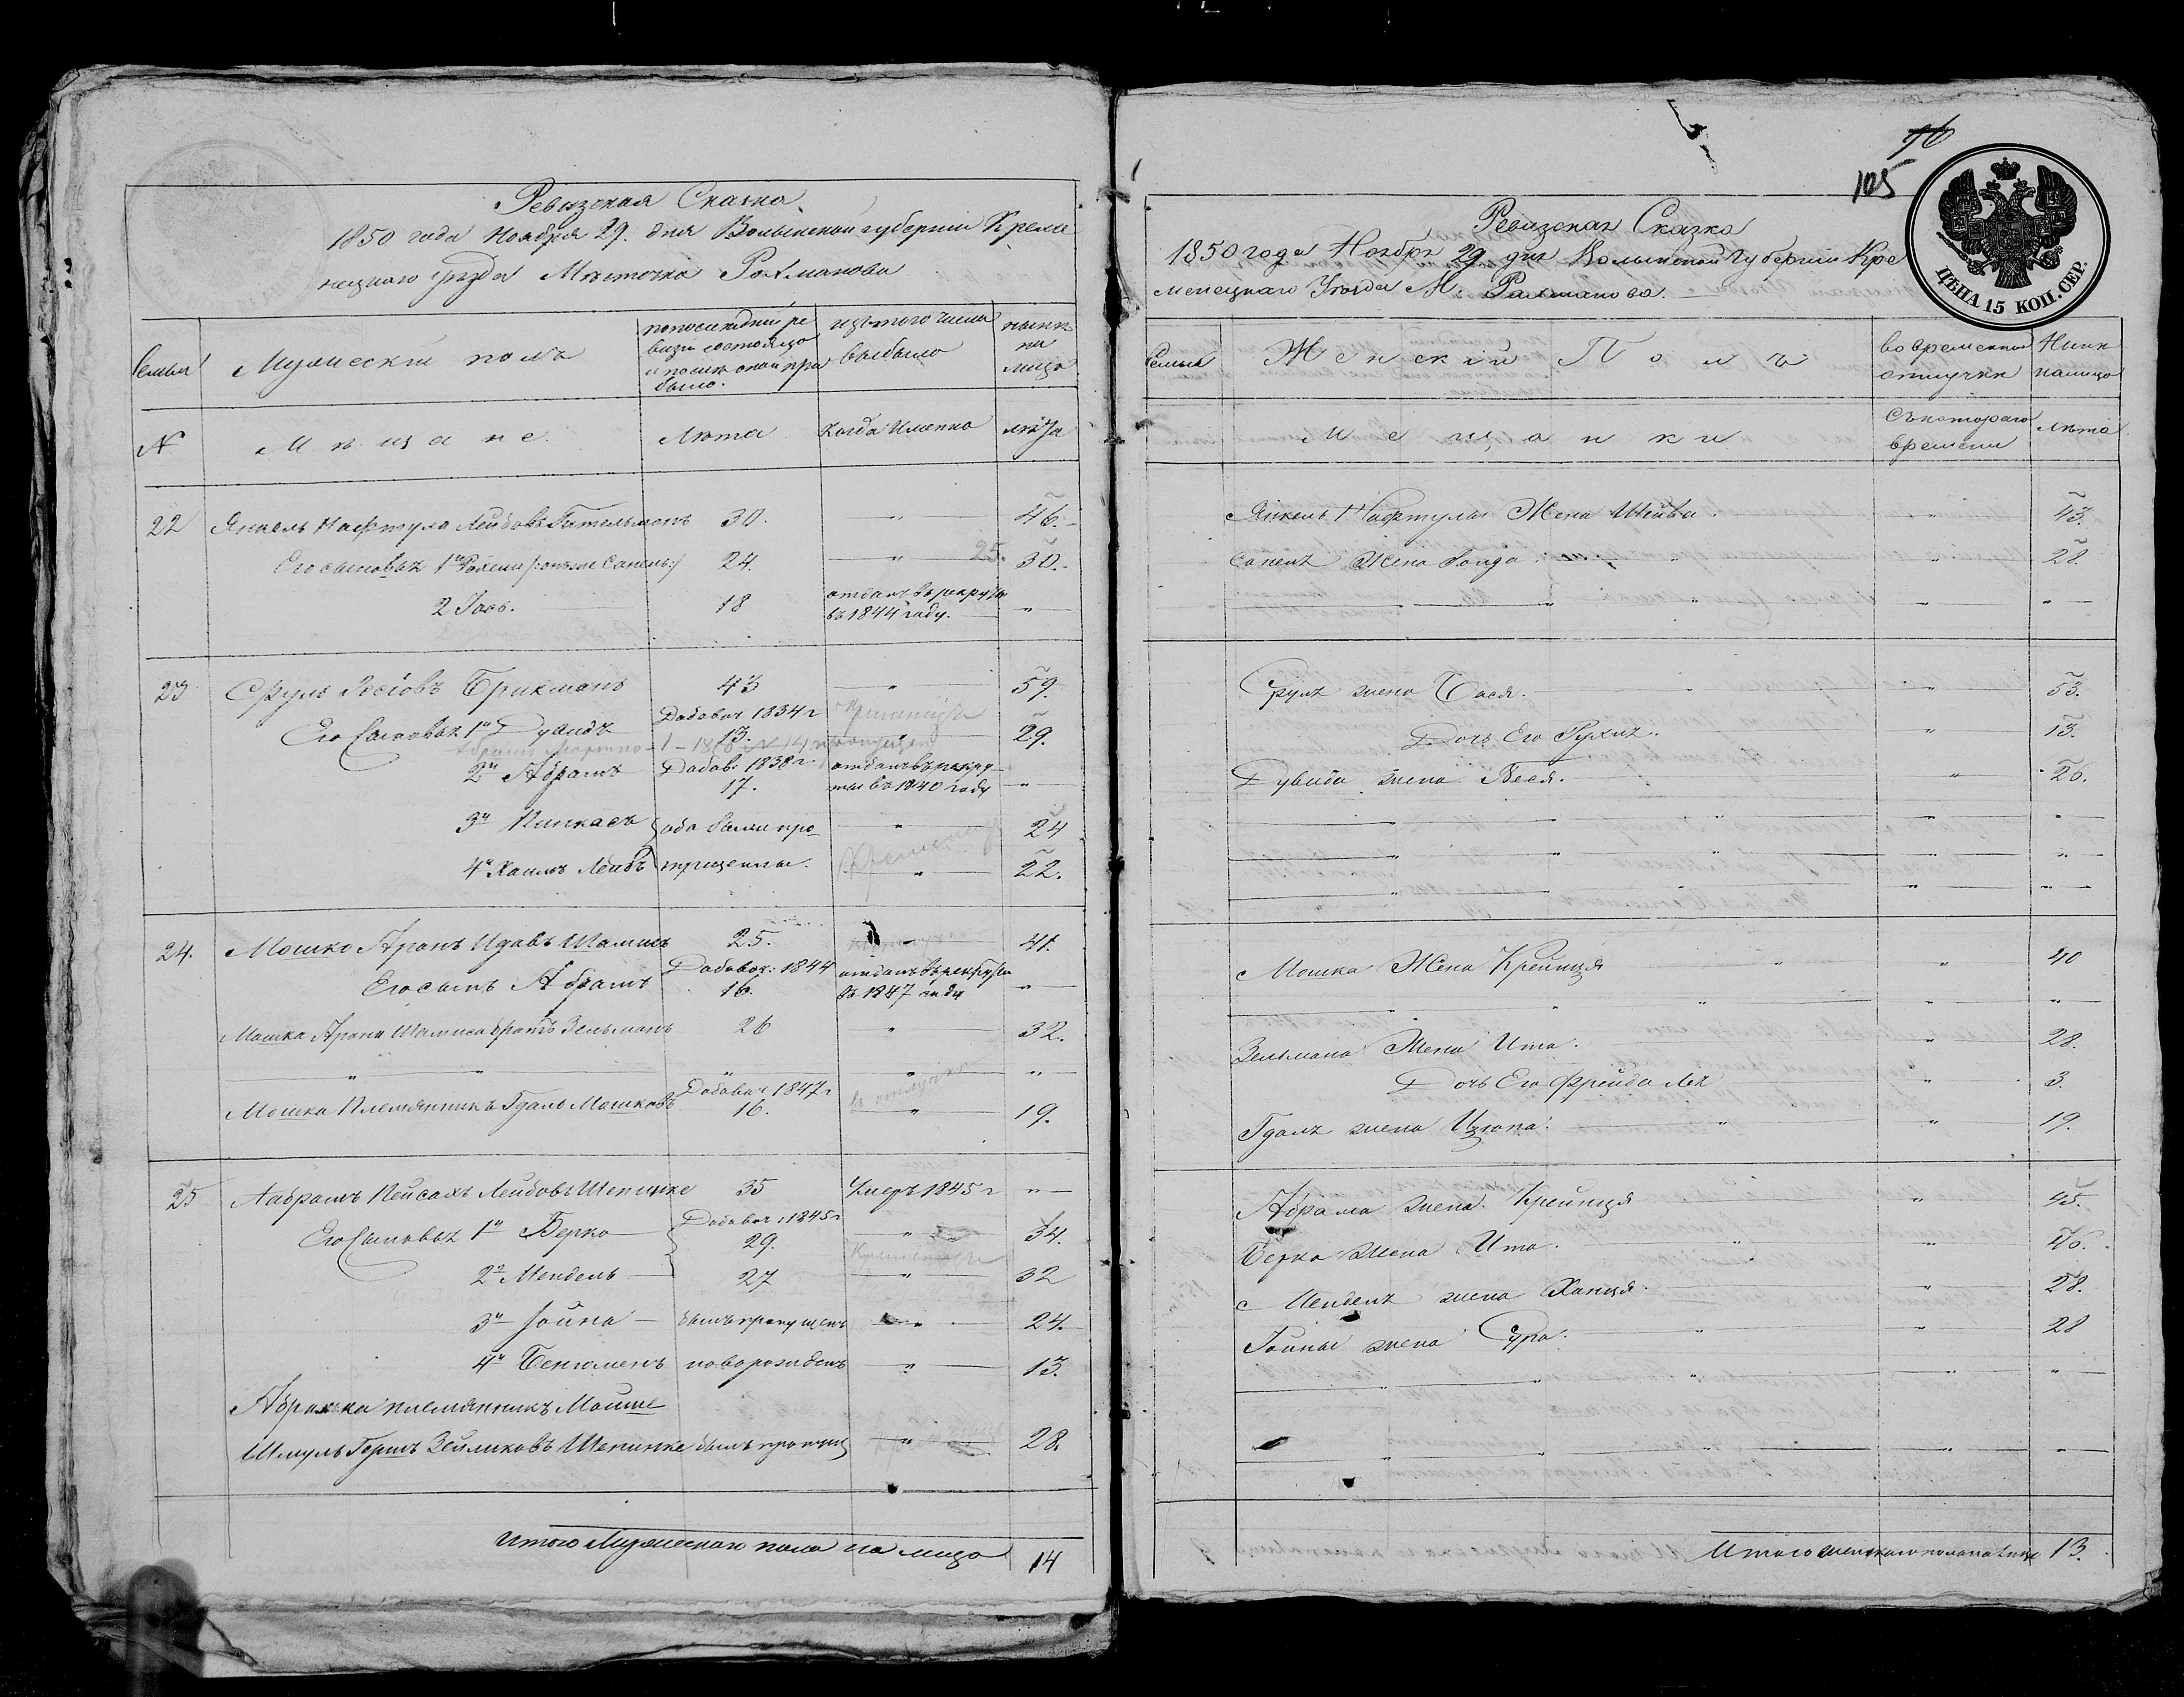 Ревизская Сказка
1850 года Ноября 29. дня Волынской губернии Креме
нецкаго уезда Местечка Рохманова
Семьи
Мужескій полъ
по последней ре
визіи состояло
и после оной при
было.
изъ того числа
выбыло
ныне
на
лицо
N
Мещане
Лета
Когда именно
лета
22 Янкель Нафтула Лейбовъ Гительманъ 30. " 46.
Его сыновья 1й 24. " 25. 30.
2 Іось. 18 отданъ въ рекруты
въ 1844 году. "
23 Сруль Іосіовъ Брикманъ 43 " 59.
Его Сыновья 1й Дувидъ Добавоч 1834 г
13. " 29.
2й Абрамъ Добав: 1838 г. отданъ въ рекру
17. ты въ 1840 году "
3й Пинкасъ оба были про " 24
4й Хаимъ Лейбъ пущены. " 22.
24. Мошко Аронъ Идовъ Шамисъ 25. " 41.
Его сынъ Абрамъ Добавоч: 1844 отданъ въ рекруты
16. въ 1847 году "
Мошка Арона Шамиса братъ Зельманъ 26 " 32.
" " " " "
Мошка Племянникъ Гдаль Мошковъ Добавоч 1847 г
16. " 19.
25 Аабрамъ Пейсахъ Лейбовъ Шепинке 35 Умеръ 1845 г "
Его Сыновья 1й Берко Добавоч: 1845 г
29. " 34.
2й Мендель 27 " 32
3й Іойна былъ пропущенъ " 24.
4й Бенюменъ новорожденъ " 13.
Абрамка племянникъ Мошне
Шмуль Гершъ Зейликовъ Шепинке былъ пропущ " 28.
Итого Мужескаго пола на лицо 14
76
105
ЦѢНА 15 КОП. СЕР.
Ревизская Сказка
1850 года Ноябрь 29 дня Волынской Губерніи Кре
менецкаго Уезда М. Рахманова.
Семьи
Женскій Полъ
во временной
отлучке
Ныне
налицо
Мещанки
Съ котораго
времени
лета
Янкель Нафтулы Жена Шейва. " 43.
Сапель Жена " 28.
" " " "
Сруля жена Бася. " 53.
Дочь Его Рухля. " 13.
Дувида жена Песя. " 26.
" " "
" " "
" " "
Мошка Жена Крейнця " 40
" " "
Зельмана Жена Ита. " 28.
Дочь Его Фрейда Лея " 3.
Гдаля жена " 19.
Абрама жена Крейнця " 45.
Берка жена Ита. " 26.
Менделя жена Ханця. " 28.
Іойны жена Сура. " 28
" " "
" " "
Итого женскаго пола на лицо 13.